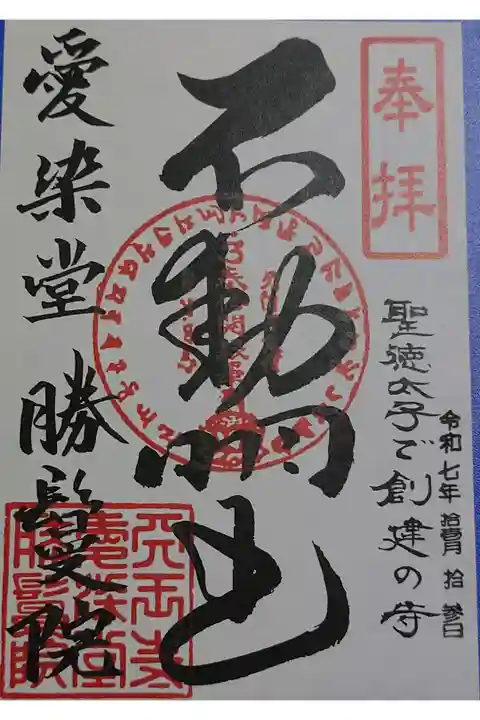 奉拝
聖徳太子ご創建の寺
令和七年 拾壹月 拾参日
不動明王
愛染堂 勝鬘院
愛染堂
勝鬘院